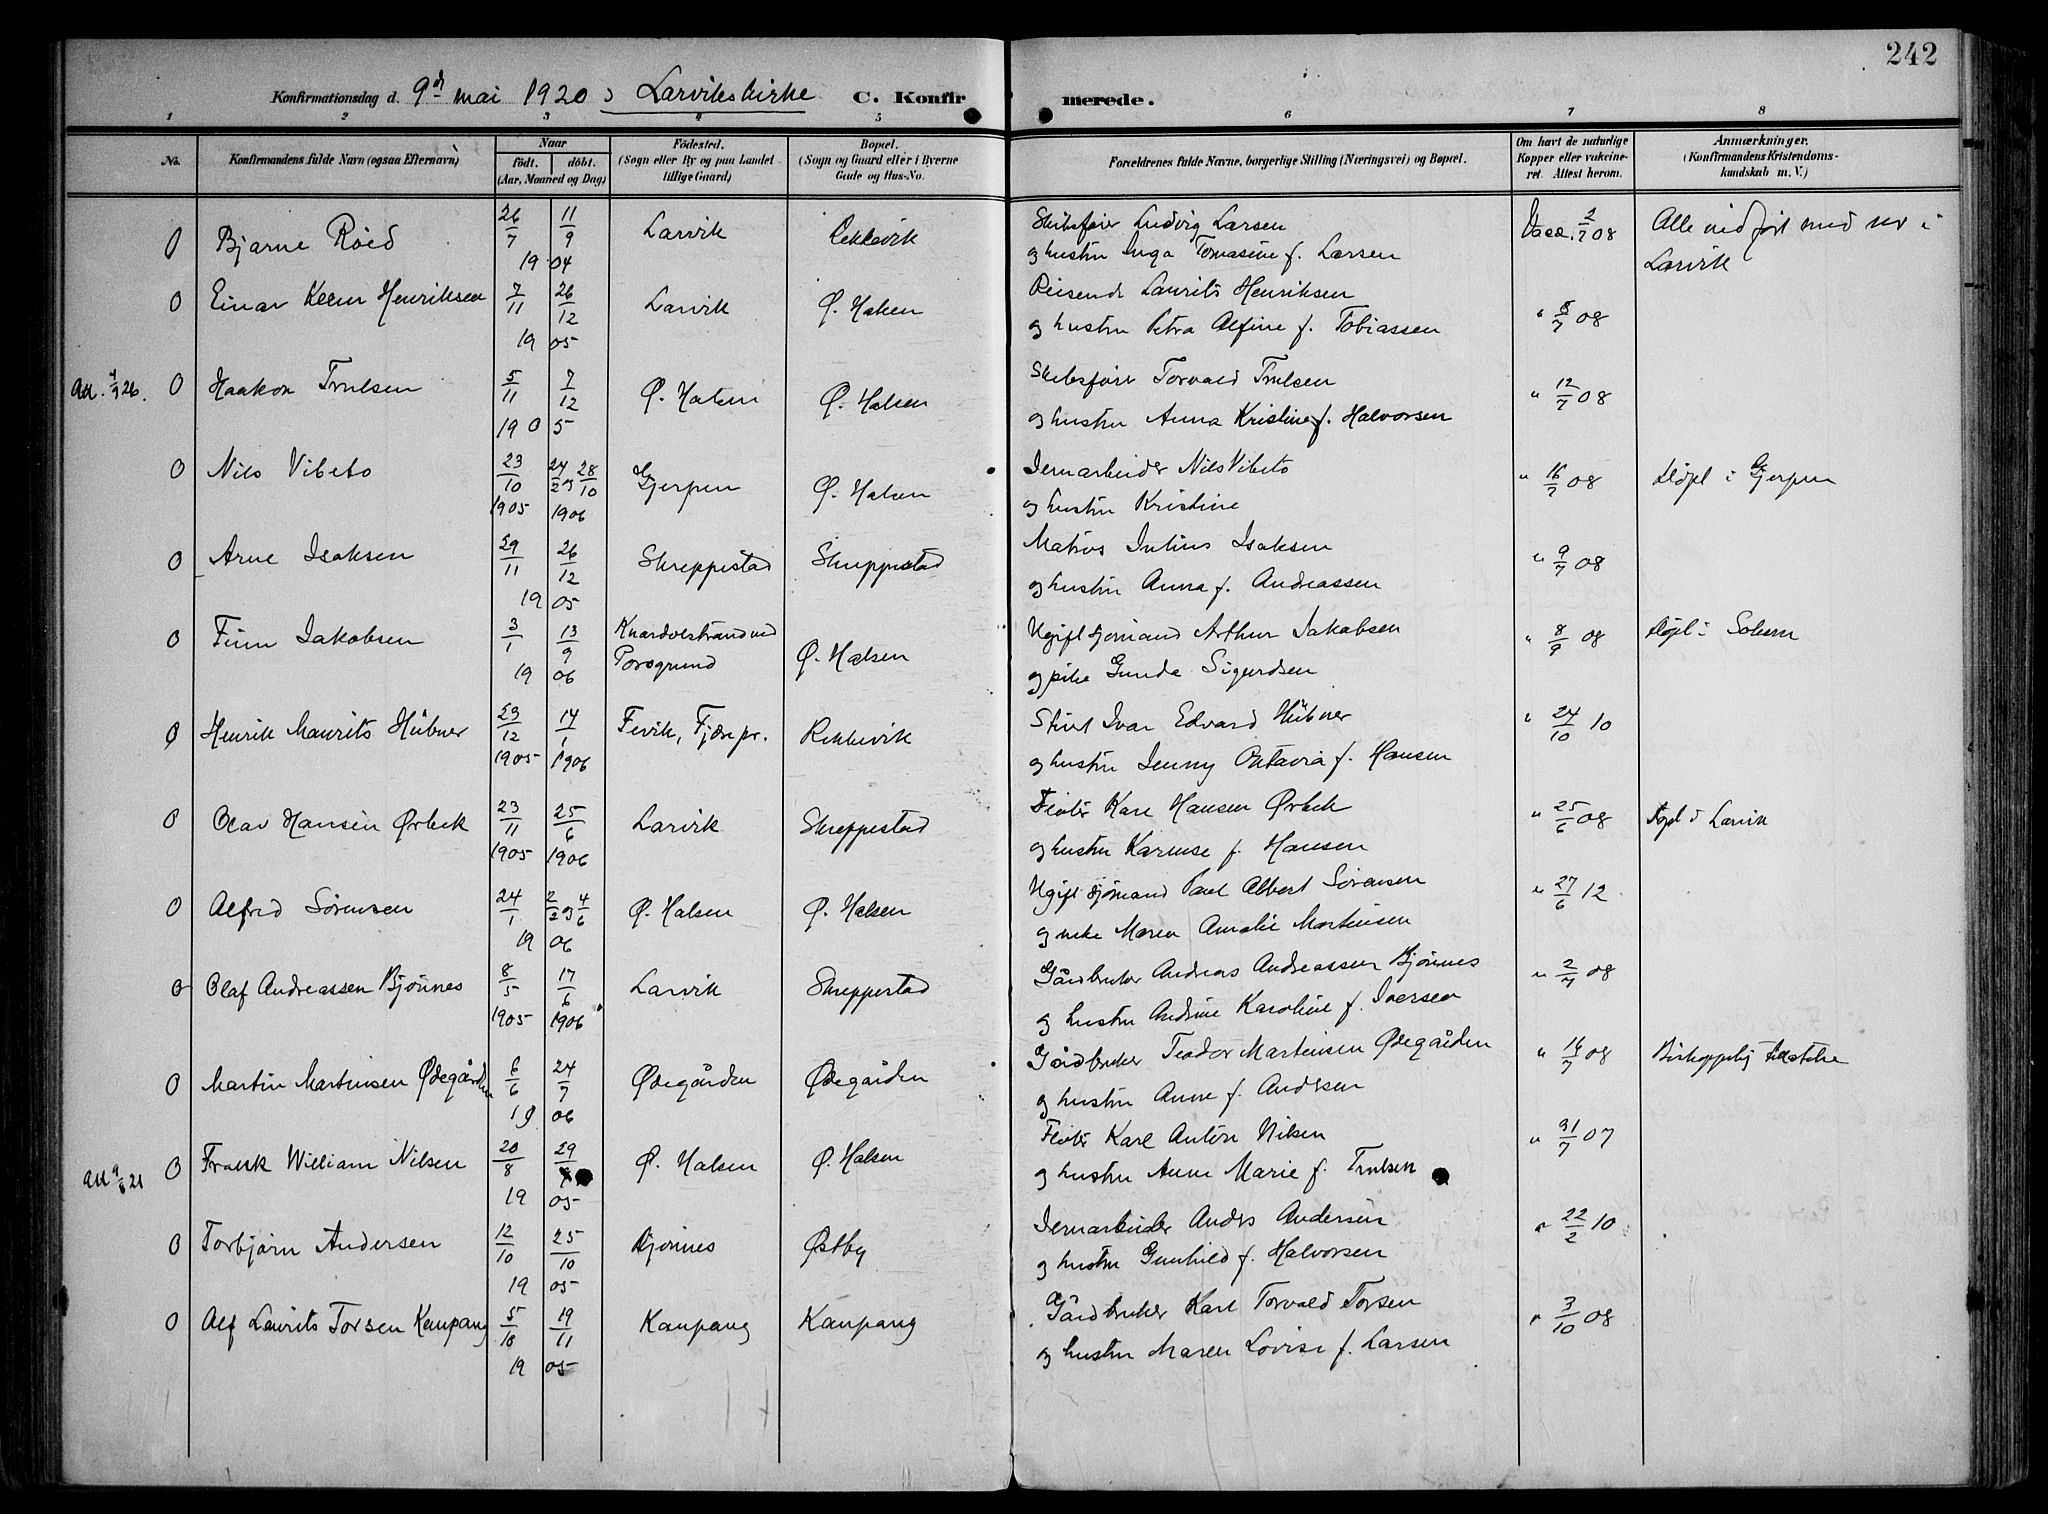 242
Konfirmationsdag d. 9d mai 1920 i Larvikskirke C. Konfirmerede.
1 2 3 4 5 6 7 8
No. Konfirmandens fulde Navn (ogsaa Efternavn) Naar født. døbt. (Aar, Maaned og Dag) Födested. (Sogn eller By og paa Landet tillige Gaard) Bopæl. (Sogn og Gaard eller i Byerne Gade og Hus-No. Forældrenes fulde Navne, borgerlige Stilling (Næringsvei) og Bopæl. Om havt de naturlige Kopper eller vakcineret. Attest herom. Anmærkninger. (Konfirmandens Kristendomskundskab m. V.)
0 Bjarne Röed 26/7 11/9 1904 Larvik Rekkevik Skibsfører Ludvig Larsen Vacc. 2/7 08 Alle i
og hustru Inga Tomasine f. Larsen Larvik
0 Einar Henriksen 7/11 26/12 1905 Larvik Ø. Halsen Reisende Laurits Henriksen " 8/7 08
og hustru Petra Alfine f. Tobiassen
Att. 4/9 26. 0 Haakon Trulsen 5/11 7/12 1905 Ø. Halsen Ø. Halsen Skibsfører Torvald Trulsen " 12/7 08
og hustru Anna Kristine f. Halvorsen
0 Nils Vibeto 23/10 1905 24/2 og 28/10 1906 Gjerpen Ø. Halsen Jernarbeider Nils Vibeto " 16/7 08 i Gjerpen
og hustru Kristine
0 Arne Isaksen 29/11 26/12 1905 Skreppestad Skreppestad Matros Julius Isaksen " 9/7 08
og hustru Anna f. Andreassen
0 Finn Jakobsen 3/1 13/9 1906 Knardalstrand ved Porsgrund Ø. Halsen Ugift sjømand Arthur Jakobsen " 8/9 08 i Solum
og pike Gunda Sigurdsen
0 Henrik Maurits Hübner 23/12 1905 14/1 1906 Fevik, Fjære pr. Rekkevik Skibst Ivar Edvard Hübner " 24/10 10
og hustru Jenny Oktavia f. Hansen
0 Olav Hansen Ørbek 23/11 1905 25/6 1906 Larvik Skreppestad Fløter Karl Hansen Ørbek " 25/6 08 i Larvik
og hustru Karense f. Hansen
0 Alfred Sörensen 24/1 2/2 og 4/6 1906 Ø. Halsen Ø. Halsen Ugift sjømand Paul Albert Sörensen " 27/6 12
og enke Maren Amalie Martinsen
0 Olaf Andreassen Bjönnes 8/5 1905 17/6 1906 Larvik Skreppestad Gårdbruker Andreas Andreassen Bjönnes " 2/7 08
og hustru Andrine Karoline f. Iversen
0 Martin Martinsen Ødegården 6/6 24/7 1906 Ødegården Ødegården Gårdbruker Teodor Martinsen Ødegården " 16/7 08 Biskoppelig tilladelse
og hustru Anne f. Andersen
Att 9/8 21 0 Frank William Nilsen 20/8 29/9 1905 Ø. Halsen Ø. Halsen Fløter Karl Anton Nilsen " 31/7 07
og hustru Anne Marie f. Trulsen
0 Torbjörn Andersen 12/10 25/10 1905 Bjönnes Østby Jernarbeider Anders Andersen " 22/2 10
og hustru Gunhild f. Halvorsen
0 Alf Laurits Torsen Kaupang 5/10 19/11 1905 Kaupang Kaupang Gårdbruker Karl Torvald Torsen " 3/10 08
og hustru Maren Lovise f. Larsen